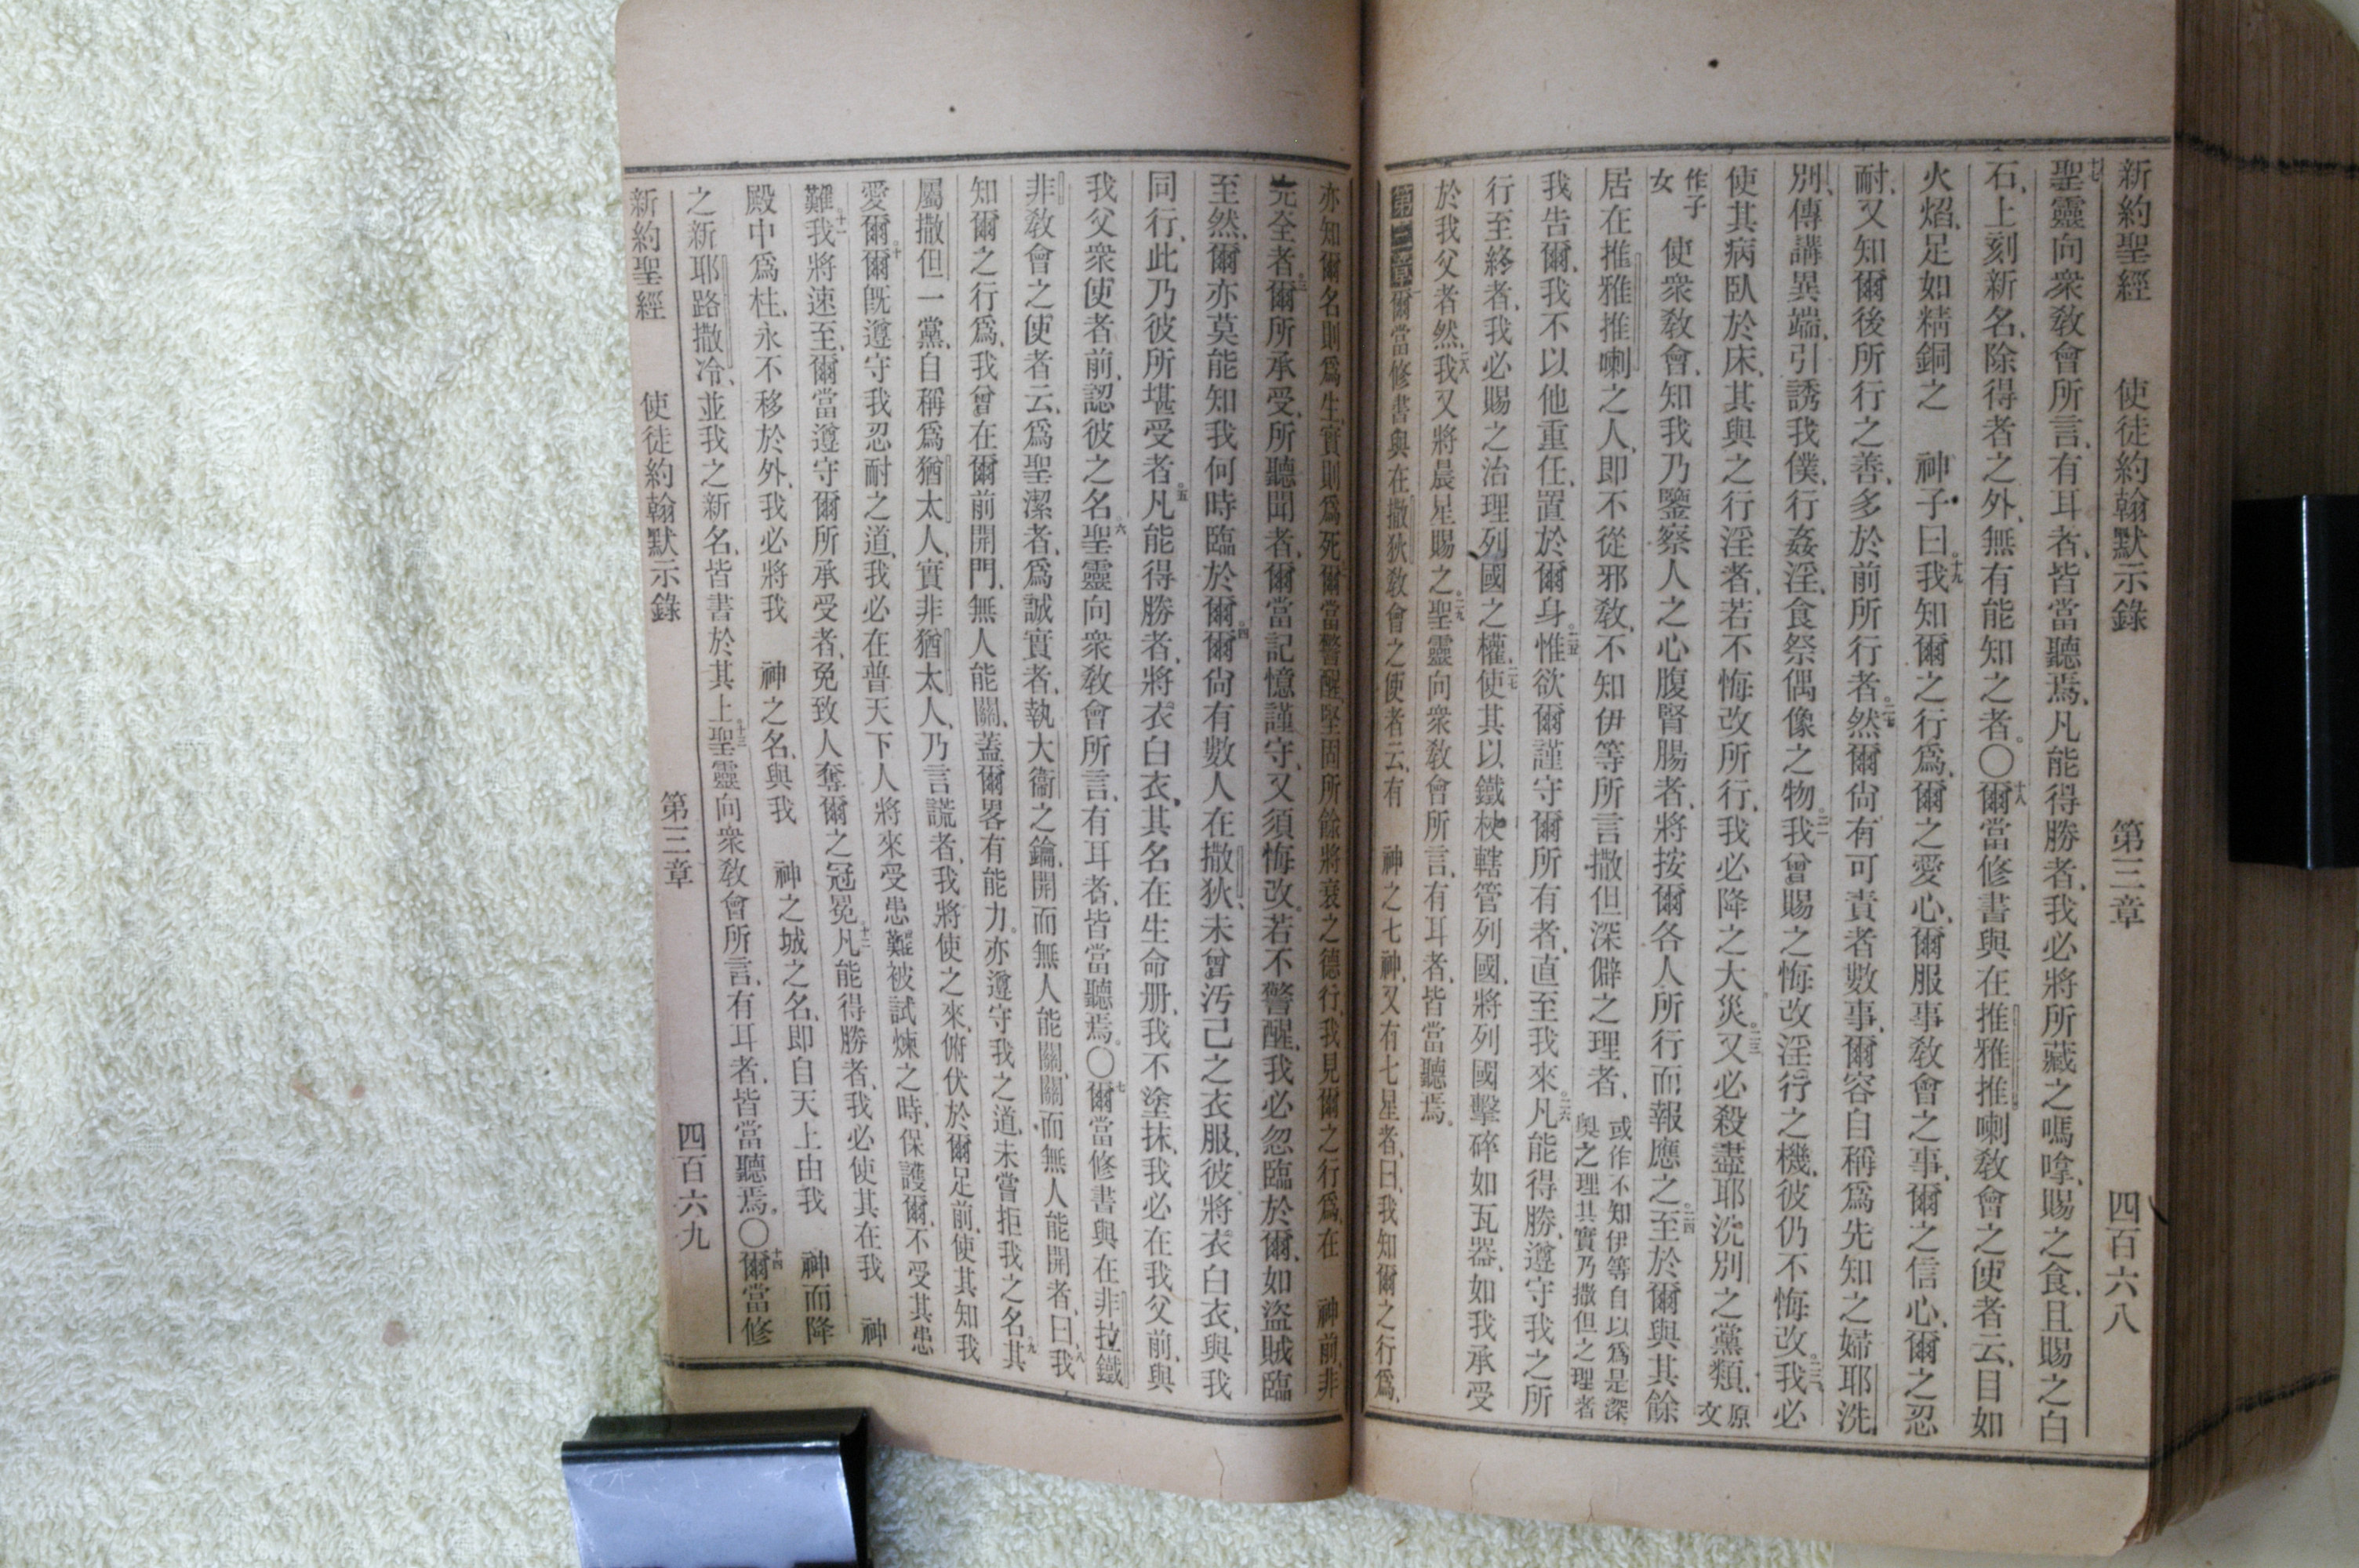 新約聖經　使徒約翰默示錄　第三章　四百六八
十七聖靈向衆敎會所言、有耳者、皆當聽焉、凡能得勝者、我必將所藏之嗎嗱、賜之食、且賜之白
石、上刻新名、除得者之外、無有能知之者。〇十八爾當修書與在推雅推喇敎會之使者云、目如
火焰、足如精銅之　神子曰、十九我知爾之行爲、爾之愛心、爾服事敎會之事、爾之信心、爾之忍
耐、又知爾後所行之善、多於前所行者。二十然爾尙有可責者數事、爾容自稱爲先知之婦耶洗
別、傳講異端、引誘我僕、行姦淫、食祭偶像之物。二一我曾賜之悔改淫行之機、彼仍不悔改、二二我必
使其病臥於床、其與之行淫者、若不悔改所行、我必降之大災。二三又必殺盡耶洗別之黨類、原文
作子女　使衆敎會、知我乃鑒察人之心腹腎腸者、將按爾各人所行而報應之。二四至於爾與其餘
居在推雅推喇之人、卽不從邪敎、不知伊等所言撒但深僻之理者、或作不知伊等自以爲是深奧之理其實乃撒但之理者
我告爾、我不以他重任、置於爾身。二五惟欲爾謹守爾所有者、直至我來。二六凡能得勝、遵守我之所
行至終者、我必賜之治理列國之權、二七使其以鐵杖轄管列國、將列國擊碎如瓦器、如我承受
於我父者然、二八我又將晨星賜之。二九聖靈向衆敎會所言、有耳者、皆當聽焉。
第三章　一爾當修書與在撒狄敎會之使者云、有　神之七神、又有七星者、曰、我知爾之行爲、
亦知爾名則爲生、實則爲死、二爾當警醒、堅固所餘將衰之德行、我見爾之行爲、在　神前、非
完全者。三爾所承受、所聽聞者、爾當記憶謹守、又須悔改。若不警醒、我必忽臨於爾、如盜賊臨
至然、爾亦莫能知我何時臨於爾。四爾尙有數人在撒狄、未曾汚己之衣服、彼將衣白衣、與我
同行、此乃彼所堪受者。五凡能得勝者、將衣白衣、其名在生命册、我不塗抹、我必在我父前、與
我父衆使者前、認彼之名、六聖靈向衆敎會所言、有耳者、皆當聽焉。〇七爾當修書與在非拉鐵
非敎會之使者云、爲聖潔者、爲誠實者、執大衞之鑰、開而無人能關、關而無人能開者、曰、八我
知爾之行爲、我曾在爾前開門、無人能關、蓋爾畧有能力。亦遵守我之道、未嘗拒我之名、九其
屬撒但一黨、自稱爲猶太人、實非猶太人、乃言謊者、我將使之來、俯伏於爾足前、使其知我
愛爾。十爾旣遵守我忍耐之道、我必在普天下人將來受患難被試煉之時、保護爾、不受其患
難。十一我將速至、爾當遵守爾所承受者、免致人奪爾之冠冕。十二凡能得勝者、我必使其在我　神
殿中爲柱、永不移於外、我必將我　神之名、與我　神之城之名、卽自天上由我　神而降
之新耶路撒冷、並我之新名、皆書於其上。十三聖靈向衆敎會所言、有耳者、皆當聽焉。〇十四爾當修
新約聖經　使徒約翰默示錄　第三章　四百六九